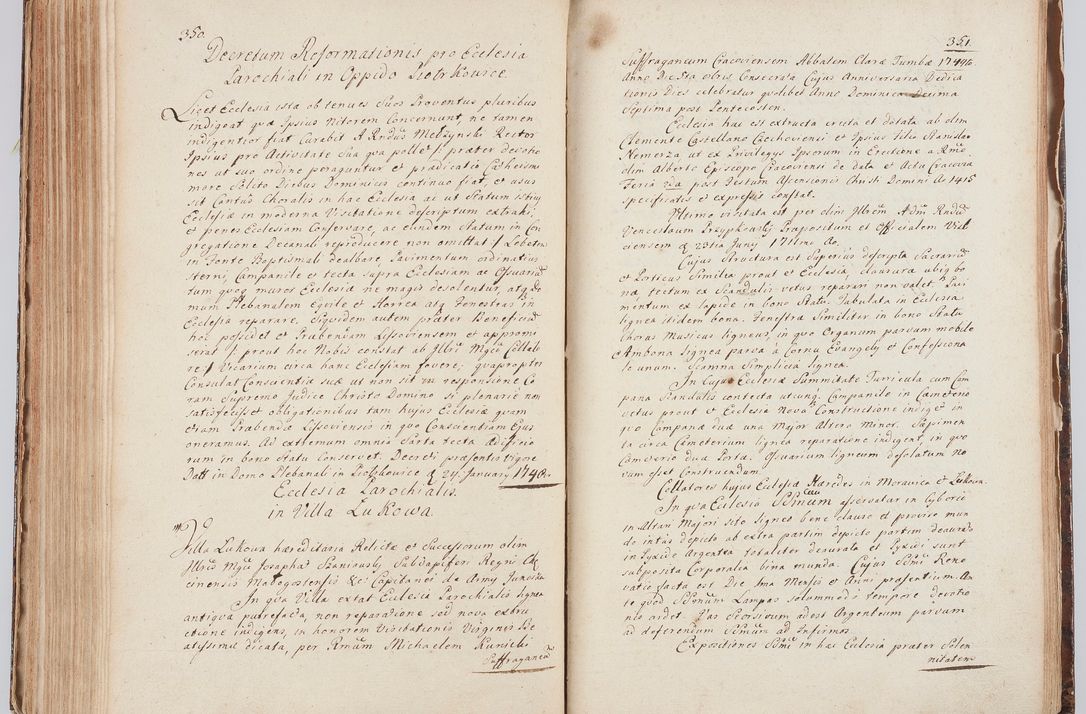 350.
Decretum Reformationis pro Ecclesia
Parochiali in Oppido Piotrkowice.
Licet Ecclesia ista ob tenues suos Proventus pluribus
indigeat quæ Ipsius Nitorem Concernunt, ne tamen
indigentior fiat Curabit A Rndus Melżynski Rector
Ipsius pro Activitate Sua qua pollet / præter devotio
nes ut suo ordine peragantur et prædicatio Catheismi
more solito Diebus Dominicis continuo fiat, et usus
sit Cantus Choralis in hac Ecclesia ac ut Statum istius
Ecclesiæ in moderna Visitatione descriptum extrahi,
et penes Ecclesiam Conservare, ac eundem statum in Con
gregatione Decanali reproducere non omittat / Lebetem
in Fonte Baptismali dealbare, Pavimentum ordinatius
sterni, Campanile et tecta supra Ecclesiam ac Ossuaria
tum quoq muros Ecclesiæ ne magis desolentur, atq Do
mum Plebanalem Equile et Horrea atq Fenestras in
Ecclesia reparare. Siquidem autem præter Beneficium
hoc possidet et Præbendam Lissoviensem et appromi
serat / prout hoc Nobis constat ab Illri Mgco Collato
re / Vicarium circa hanc Ecclesiam fovere; quapropter
Consulat Conscientiæ suæ ut non sit in responsione Co
ram Supremo Judice Christo Domino si plenarie non
satisfecisset obligationibus tam hujus Ecclesiæ quam
etiam Præbendæ Lissoviensis in quo Conscientiam Ejus
oneramus. Ad extremum omnia Sarta tecta Ædificio
rum in bono statu Conservet. Decreti præsentis vigore.
Datt in Domo Plebanali in Piotrkowice d 24 January 1748.
Ecclesia Parochialis
in Villa Łukowa
Villa Łukowa hæreditaria Relictæ et Successorum olim
Illris Mgci Josephi Szaniawski Subdapiferi Regni Chę
cinensis Małogostensis &c Capitanei de Army Junosza
In qua Villa extat Ecclesia Parochialis lignea
antiqua putrefacta, non reparatione sed nova exstru
ctione indigens, in honorem Visitationis Virginis Be
atissimæ dicata, per Rmum Michaelem Kunicki
Suffraganeũ
351.
Suffraganeum Cracoviensem Abbatem Claræ Tumbæ 1746
Anno Die 8va 8bris Consecrata Cujus Anniversaria Dedica
tionis Dies celebratur quolibet Anno Dominica decima
septima post Pentecosten.
Ecclesia hæc est extructa erecta et dotata ab olim
Clemente Castellano Czechoviensi et Ipsius filio Stanislao
Nemerza, ut ex Privilegys Ipsorum in Erectione a Rmo
olim Alberto Episcopo Cracoviensi de data et Actu Cracoviæ
Feria 2da post Festum Ascensionis Christi Domini Ao 1415
specificatis et expressis constat.
Ultimo visitata est per olim Illrem Adm Rndum
Venceslaum Przypkowski Præpositum et Officialem Viel
ciensem d 28tia Juny 1711mi Ao.
Cujus Structura est Superius descripta Sacrariũ
et Porticus Similia prout et Ecclesia, clausura ubiq bo
na, tectum ex Scandulis vetus reparari non valet. Pavi
mentum ex lapide in bono Statu. Tabulata in Ecclesia
lignea itidem bona. Fenestræ Similiter in bono Statu
Chorus Musicus ligneus, in quo Organum parvum mobile
Ambona lignea parva à Cornu Evangely et Confessiona
le unum. Scamna Simplicia lignea.
In Cujus Ecclesiæ Summitate Turricula cum Cam
pana Scandulis contecta utcunq. Campanile in Cæmeterio
vetus prout et Ecclesia Nova Constructione indiget in
quo Campanæ duæ una Major Altera Minor. Sepimen
ta circa Cæmeterium lignea reparatione indigent, in quo
Cæmeterio duæ Portæ. Ossuarium ligneum desolatum No
vum esset Construendum.
Collatores hujus Ecclesiæ Hæredes in Morawica et Łukowa.
In qua Ecclesia SSmum Ccum asservatur in Cyborio
in Altari Majori sito ligneo bene clauso et proviso mun
do intus depicto ab extra partim depicto partim deaurato
in Pyxide Argentea totaliter deaurata et Pyxidi sunt
subposita Corporalia bina munda. Cujus SSmi Reno
vatio facta est Die Ima Mensis et Anni præsentium. An
te quod SSmum Lampas solummodo tempore devotio
nis ardet. Vas Seorsivum adest Argenteum parvum
ad deferendum SSmum ad Infirmos
Expositiones SSmi in hac Ecclesia præter Solen
nitatem